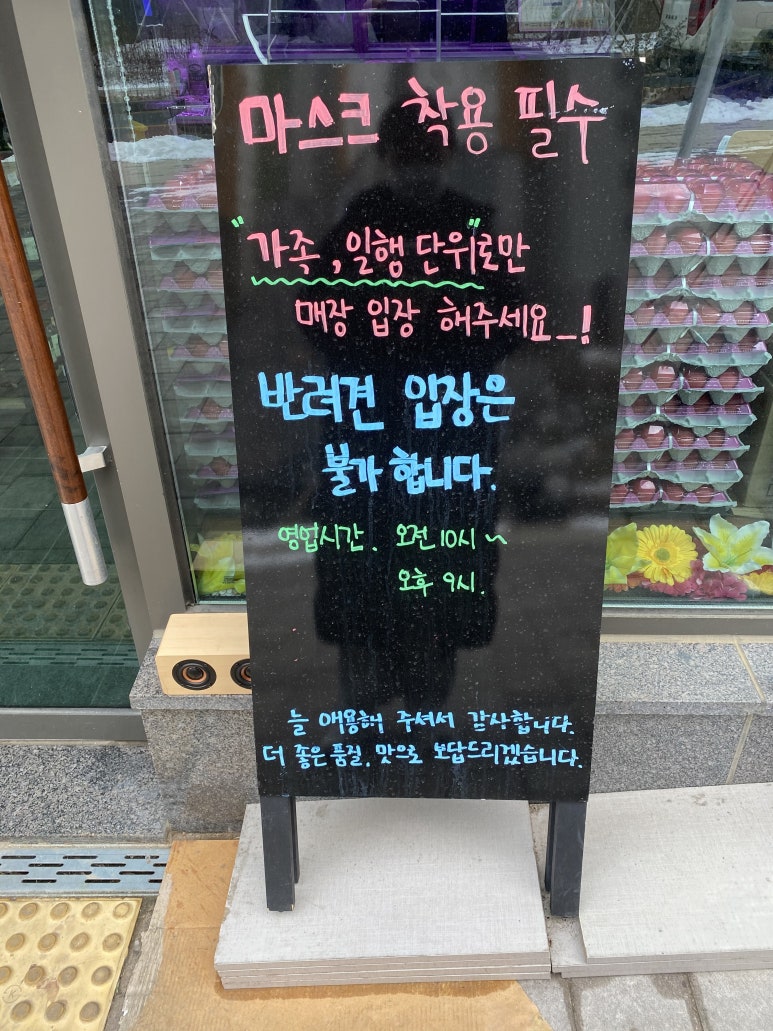 마스크 착용 필수
"가족, 일행 단위"로만
매장 입장 해주세요_!
반려견 입장은
불가 합니다.
영업시간. 오전 10시~
오후 9시.
늘 애용해 주셔서 감사합니다.
더 좋은 품질, 맛으로 보답드리겠습니다.